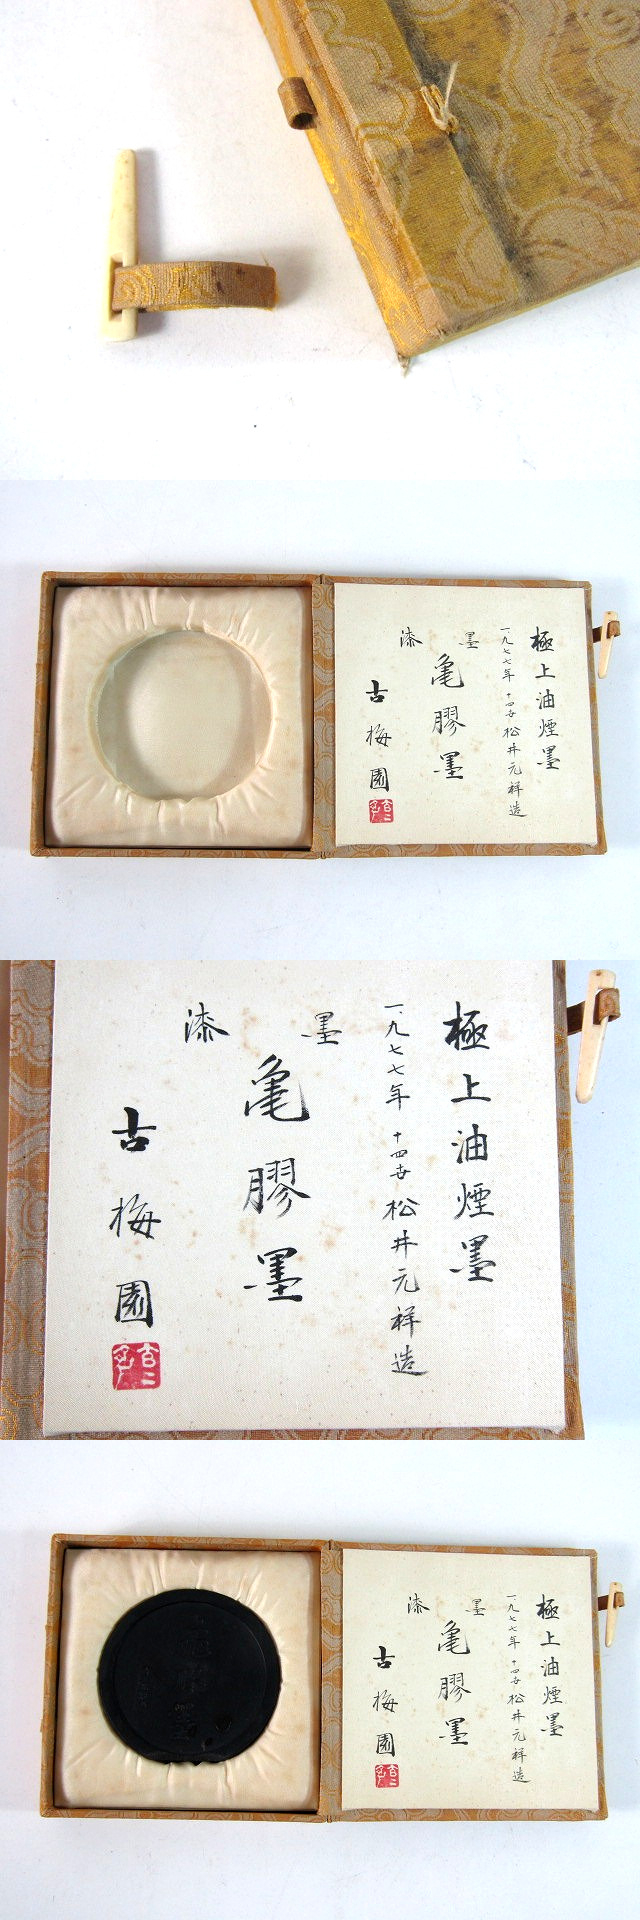 極上油煙墨
一九七七年 十四世 松井元祥造
墨
漆
亀膠墨
古梅園
極上油煙墨
一九七七年 十四世 松井元祥造
墨
漆
亀膠墨
古梅園
極上油煙墨
一九七七年 十四世 松井元祥造
墨
漆
亀膠墨
古梅園